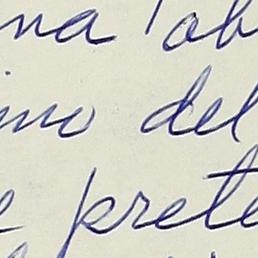 na l'ab
ino del
e prete